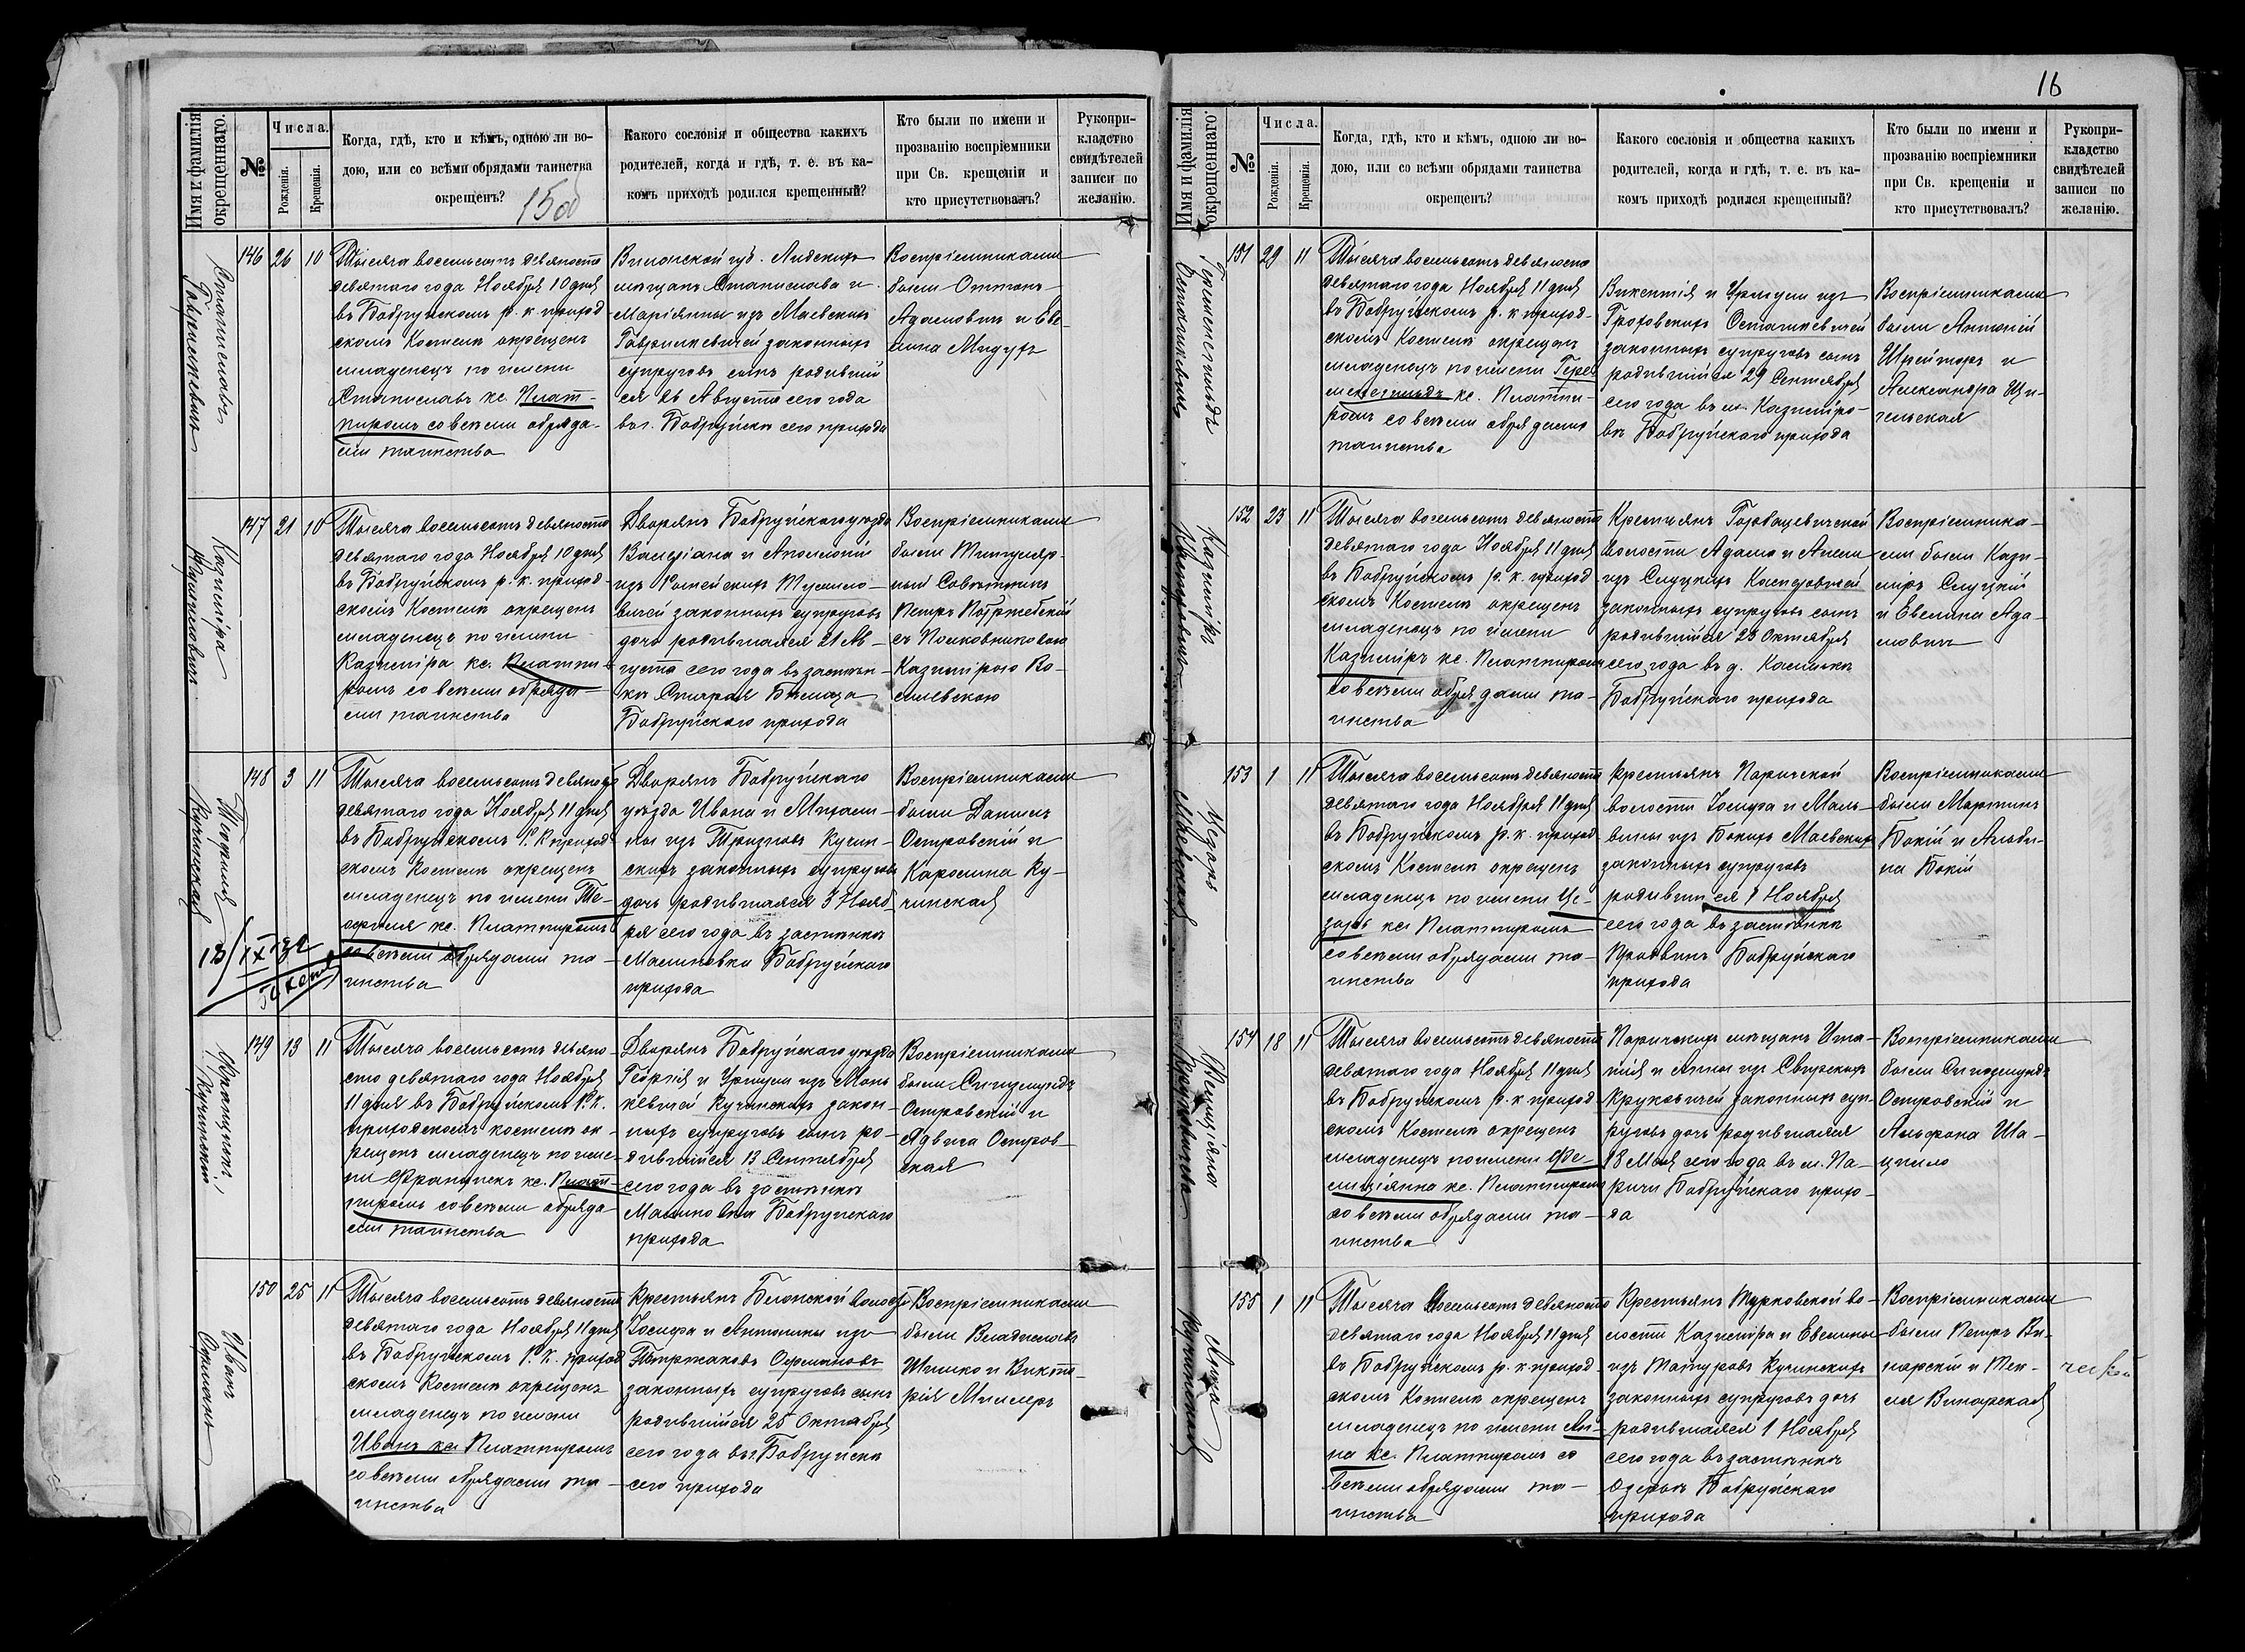 16
Имя и фамилія окрещеннаго.
№
Числа.
Рожденія.
Крещенія.
Когда, гдѣ, кто и кѣмъ, одною ли во-
дою, или со всѣми обрядами таинства
окрещенъ?
Какого сословія и общества какихъ
родителей, когда и гдѣ, т. е. въ ка-
комъ приходѣ родился крещенный?
Кто были по имени и
прозванію воспріемники
при Св. крещеніи и
кто присутствовалъ?
Рукопри-
кладство
свидѣтелей
записи по
желанію.
Станиславъ
146 26 10
Тысяча восемьсотъ девяносто
девятаго года Ноября 10 дня
въ Бобруйскомъ р. к. приход
скомъ Костелѣ окрещенъ
младенецъ по имени
Станиславъ кс. Плат-
пиромъ со всѣми обряда-
ми таинства
Виленской губ. Лидскихъ
мѣщанъ Станислава и
Маріянны изъ Маевскихъ
законныхъ
супруговъ сынъ родивший
ся 26 Августа сего года
въ г. Бобруйскѣ сего прихода
Воспріемниками
были
Адамовичъ и Еве-
лина
Казиміра
147 21 10
Тысяча восемьсотъ девяносто
девятаго года Ноября 10 дня
въ Бобруйскомъ р. к. приход-
скомъ Костелѣ окрещенъ
младенецъ по имени
Казиміра кс.
ромъ со всѣми обряда-
ми таинства
Дворянъ Бобруйскаго уѣзда
Валеріана и Аполоніи
изъ
вичей законныхъ супруговъ
дочь родившаяся 21 Ав-
густа сего года въ застѣн-
кѣ Старая
Бобруйскаго прихода
Воспріемниками
были Титуляр-
ный Совѣтникъ
Петръ
съ Полковниковою
Казимірою Во-
Теофилія
Кучинская
148 3 11
Тысяча восемьсотъ девяносто
девятаго года Ноября 11 дня
въ Бобруйскомъ Р. К. приход
скомъ Костелѣ окрещенъ
младенецъ по имени Те-
офилія кс. Платпиромъ
со всѣми обрядами та-
инства
Дворянъ Бобруйскаго
уѣзда Ивана и Михали-
ны изъ Тризновъ Кучин-
скихъ законныхъ супруговъ
дочь родившаяся 3 Нояб-
ря сего года въ застѣнкѣ
Малиновка Бобруйскаго
прихода
Воспріемниками
были Даніилъ
Островскій и
Каролина Ку-
чинская
Францискъ
Кучинскій
149 13 11
Тысяча восемьсотъ девяно-
сто девятаго года Ноября
11 дня въ Бобруйскомъ Р. К.
приходскомъ костелѣ ок-
рещенъ младенецъ по име-
ни Францискъ кс. Плат-
пиромъ со всѣми обряда
ми таинства
Дворянъ Бобруйскаго уѣзда
Георгія и Урсулы изъ Мань
кевичей Кучинскихъ закон-
ныхъ супруговъ сынъ ро-
дившійся 13 Сентября
сего года въ застѣнкѣ
Малиновка Бобруйскаго
прихода
Воспріемниками
были Сигизмундъ
Островскій и
Ядвига Остров-
ская
Иванъ
150 25 11
Тысяча восемьсотъ девяносто
девятаго года Ноября 11 дня
въ Бобруйскомъ Р. К. приход
скомъ Костелѣ окрещенъ
младенецъ по имени
Иванъ кс. Платпиромъ
со всѣми обрядами та-
инства
Крестьянъ волости
Іосифа и Антонины изъ
законныхъ супруговъ сынъ
родившійся 25 Октября
сего года въ г. Бобруйскѣ
сего прихода
Воспріемниками
были Владиславъ
Шишко и Викто-
рія Миллеръ
Имя и фамилія окрещеннаго.
№
Числа.
Рожденія.
Крещенія.
Когда, гдѣ, кто и кѣмъ, одною ли во-
дою, или со всѣми обрядами таинства
окрещенъ?
Какого сословія и общества какихъ
родителей, когда и гдѣ, т. е. въ ка-
комъ приходѣ родился крещенный?
Кто были по имени и
прозванію воспріемники
при Св. крещеніи и
кто присутствовалъ?
Рукопри-
кладство
свидѣтелей
записи по
желанію.
151 29 11
Тысяча восемьсотъ девяносто
девятаго года Ноября 11 дня
въ Бобруйскомъ р. к. приход-
скомъ Костелѣ окрещенъ
младенецъ по имени Гере-
кс. Платпи-
ромъ со всѣми обрядами
таинства
Викентія и Урсулы изъ
Осташкевичей
законныхъ супруговъ сынъ
родившійся 29 Сентября
сего года въ м. Казиміро-
вѣ Бобруйскаго прихода
Воспріемниками
были Антоній
и
Александра
Казиміръ
152 23 11
Тысяча восемьсотъ девяносто
девятаго года Ноября 11 дня
въ Бобруйскомъ р. к. приход
скомъ Костелѣ окрещенъ
младенецъ по имени
Казиміръ кс. Платпиромъ
со всѣми обрядами та-
инства
Крестьянъ Горбацевичской
волости Адама и
изъ Слуцкихъ
законныхъ супруговъ сынъ
родившійся 23 Октября
сего года въ д.
Бобруйскаго прихода
Воспріемника-
ми были Кази-
міръ Слуцкій
и Евелина Ада-
мовичъ
Маевская
153 1 11
Тысяча восемьсотъ девяносто
девятаго года Ноября 11 дня
въ Бобруйскомъ р. к. приход
скомъ Костелѣ окрещенъ
младенецъ по имени Це-
кс. Платпиромъ
со всѣми обрядами та-
инства
Крестьянъ Паричской
волости Іосифа и Маль-
вины изъ Бокихъ Маевскихъ
законныхъ супруговъ
родивш ся 1 Ноября
сего года въ застѣнкѣ
Бобруйскаго
прихода
Воспріемниками
были Мартинъ
Бокій и Альби-
на Бокій
Фелиціянна
154 18 11
Тысяча восемьсотъ девяносто
девятаго года Ноября 11 дня
въ Бобруйскомъ р. к. приход
скомъ Костелѣ окрещенъ
младенецъ по имени Фе-
лиціянна кс. Платпиромъ
со всѣми обрядами та-
инства
Паричскихъ мѣщанъ Игна-
тія и Анны изъ Свирскихъ
Круковичей законныхъ суп-
руговъ дочь родившаяся
18 Мая сего года въ м. Па-
ричи Бобруйскаго прихо-
да
Воспріемниками
были Сигизмундъ
Островскій и
Анна
Кучинская
155 1 11
Тысяча восемьсотъ девяносто
девятаго года Ноября 11 дня
въ Бобруйскомъ р. к. приход
скомъ Костелѣ окрещенъ
младенецъ по имени Ан-
на кс. Платпиромъ со
всѣми обрядами та-
инства
Крестьянъ Турковской во-
лости Казиміра и Евелины
изъ Татуровъ Кучинскихъ
законныхъ супруговъ дочь
родившаяся 1 Ноября
сего года въ застѣнкѣ
Бобруйскаго
прихода
Воспріемниками
были Петръ Ви-
нарскій и Тек-
ля Винарская